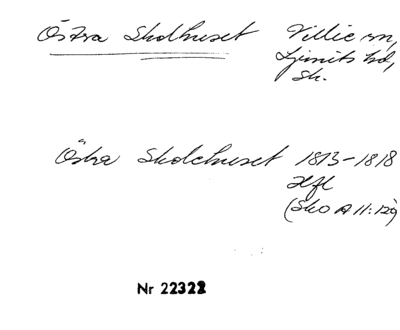 Östra Skolhuset Villie sn,
Ljunits hd,
Sk.
Östra Skolehuset 1813-1818
Hfl
(SkO A II:12a)
Nr 22322